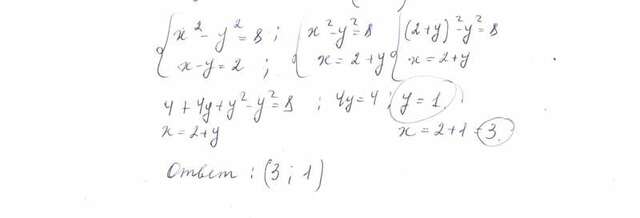 x² - y² = 8 ; x² - y² = 8 (2+y)² - y² = 8
x - y = 2 ; x = 2 + y x = 2 + y
4 + 4y + y² - y² = 8 ; 4y = 4 ; y = 1.
x = 2 + y x = 2 + 1 = 3.
Ответ : (3 ; 1)